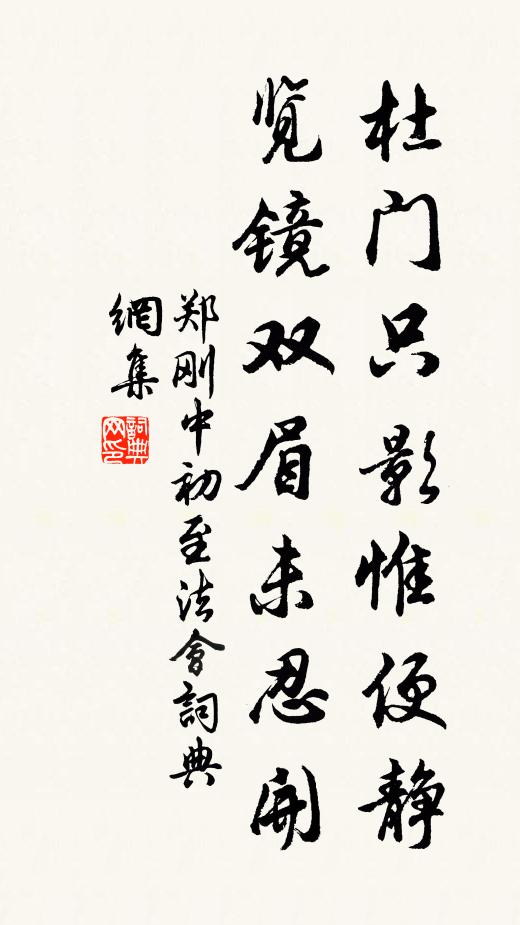 杜门只影惟便静
览镜双眉未忍开
郑刚中初至法會詞典
網集
詞典网印